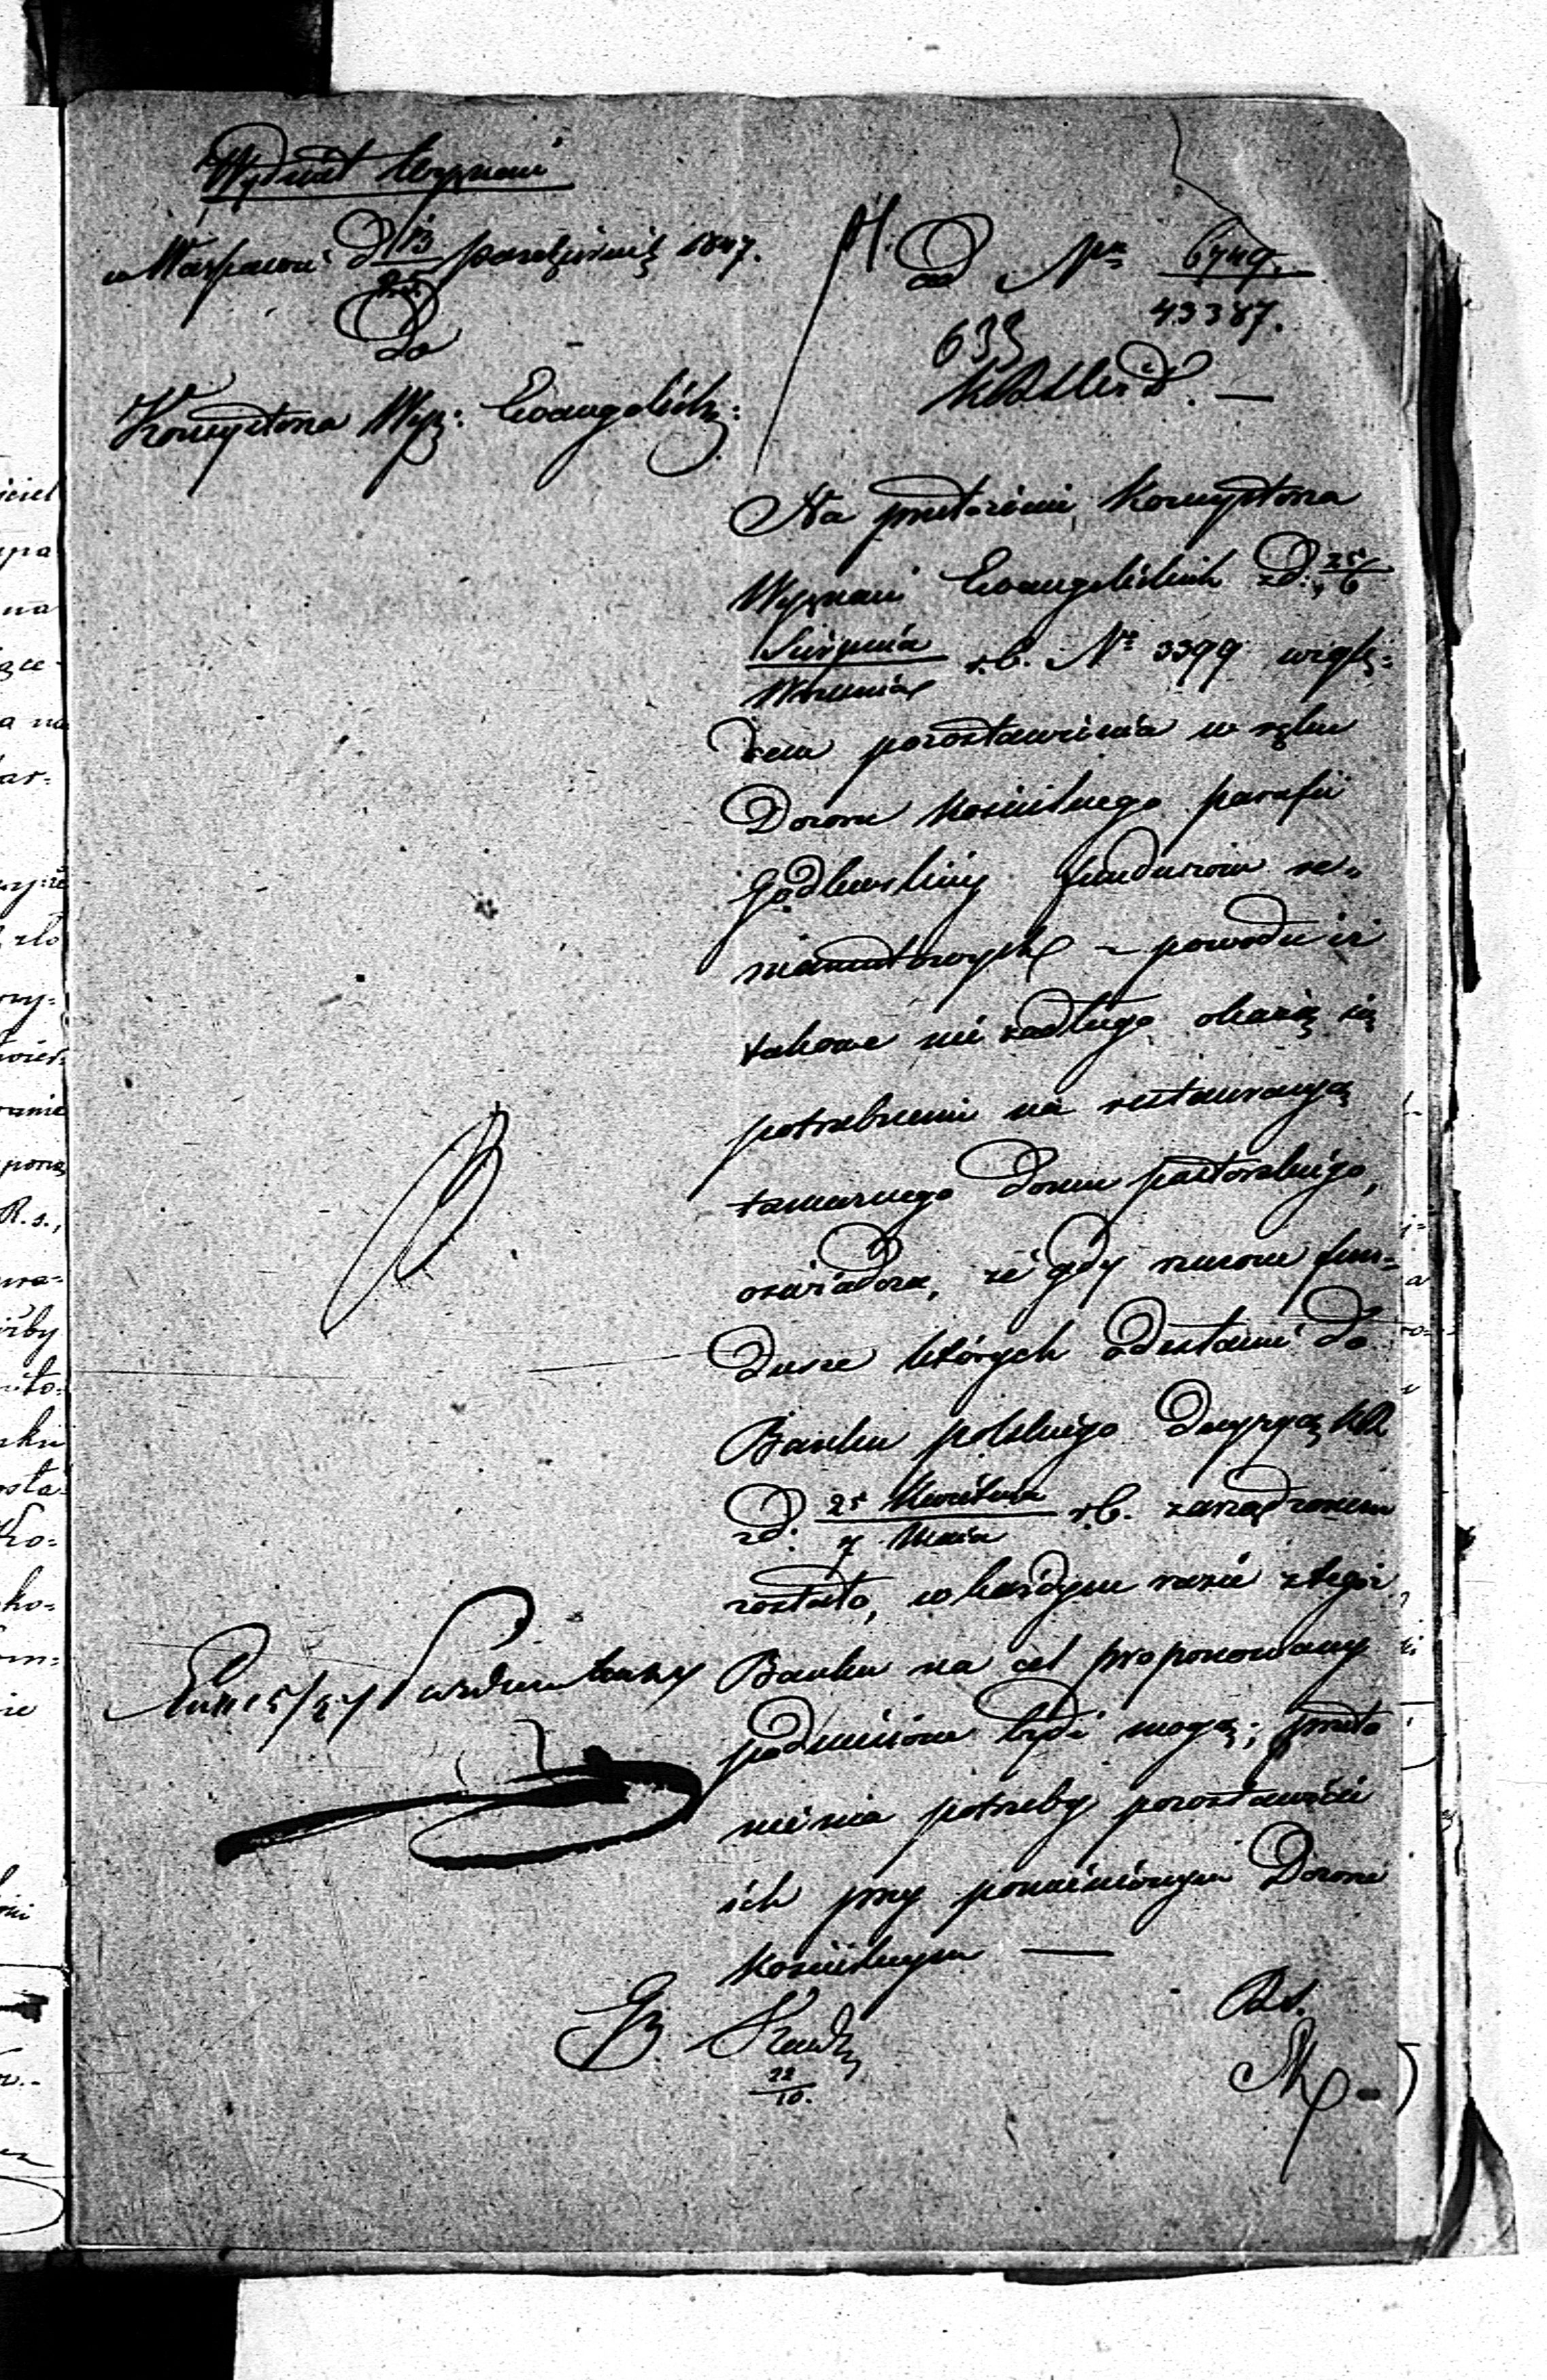 Wydział Wyznań
w Warszawie d 13/25 Października 1847.
Do
Konsystorza Wyz: Ewangelick:
ad Nrm 6749/43387.
633
Na przełożenie Konsystorza
Wyznań Ewangelickich z d: 25/6
Sierpnia/Września r.b. No 3399 wzglę-
dem pozostawienia w ręku
Dozoru Kościelnego parafii
Godlewskiej funduszów re-
manentowych z powodu iż
takowe nie zadługo okażą się
potrzebnemi na restauracyą
tamecznego domu pastorskiego,
oświadcza, że gdy rzeczone fun-
dusze których odesłanie do
Banku polskiego decyzyą KR
z d. 25 Kwietnia/7 Maia r.b. zarządzonem
zostało, w każdym razie z tegoż
Banku na cel proponowany
podniesione bydź mogą; przeto
nie ma potrzeby pozostawiać
ich przy pomienionym Dozorze
Kościelnym —
22/10.